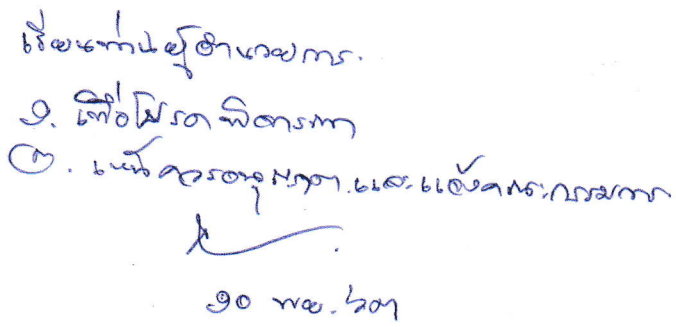 เรียนท่านผู้อำนวยการ
๑. เพื่อโปรดพิจารณา
๒. เห็นควรอนุญาต และแจ้งคณะกรรมการ
๑๐ พย. ๖๓